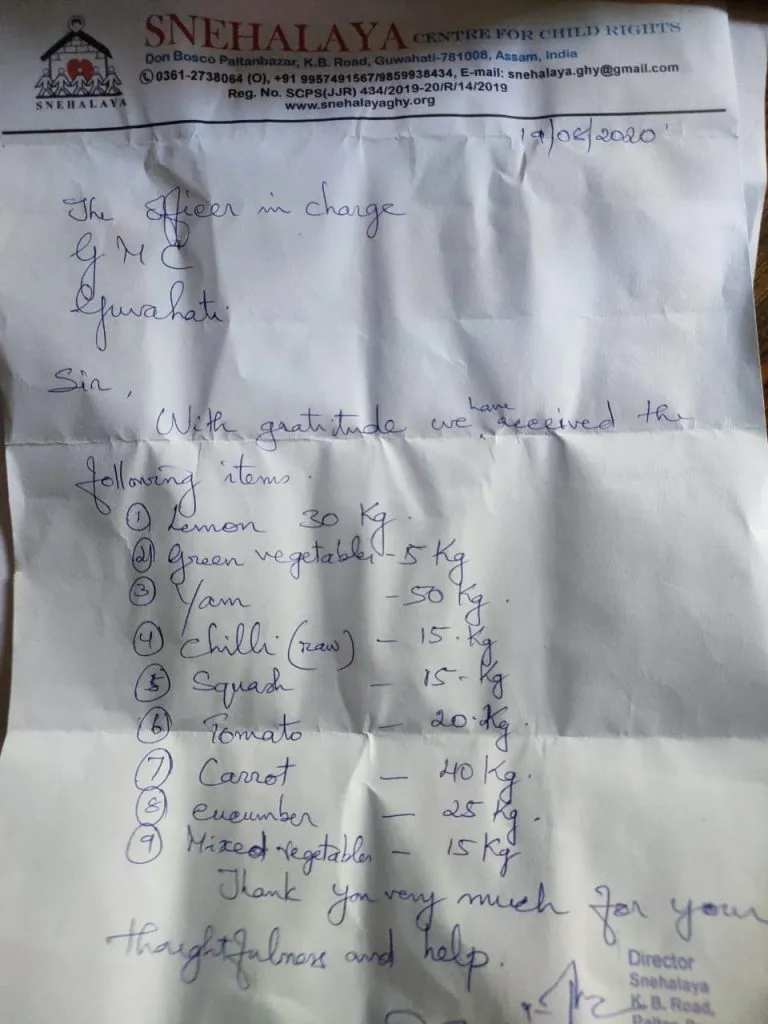 SNEHALAYA CENTRE FOR CHILD RIGHTS
Don Bosco Paltanbazar, K.B. Road, Guwahati-781008, Assam, India
0361-2738064 (O), +91 9957491567/9859938434, E-mail: snehalaya.ghy@gmail.com
Reg. No. SCPS(JJR) 434/2019-20/R/14/2019
www.snehalayaghy.org
SNEHALAYA
The officer in charge
G M C
Guwahati.
Sir,
With gratitude we have received the
following items.
① Lemon 30 Kg.
② Green vegetables - 5 Kg
③ Yam - 50 Kg.
④ Chilli (raw) - 15. Kg
⑤ Squash - 15. Kg
⑥ Tomato - 20. Kg.
⑦ Carrot - 40 Kg.
⑧ cucumber - 25 Kg.
⑨ Mixed vegetables - 15 Kg
Thank you very much for your
thoughtfulness and help.
Director
Snehalaya
K. B. Road,